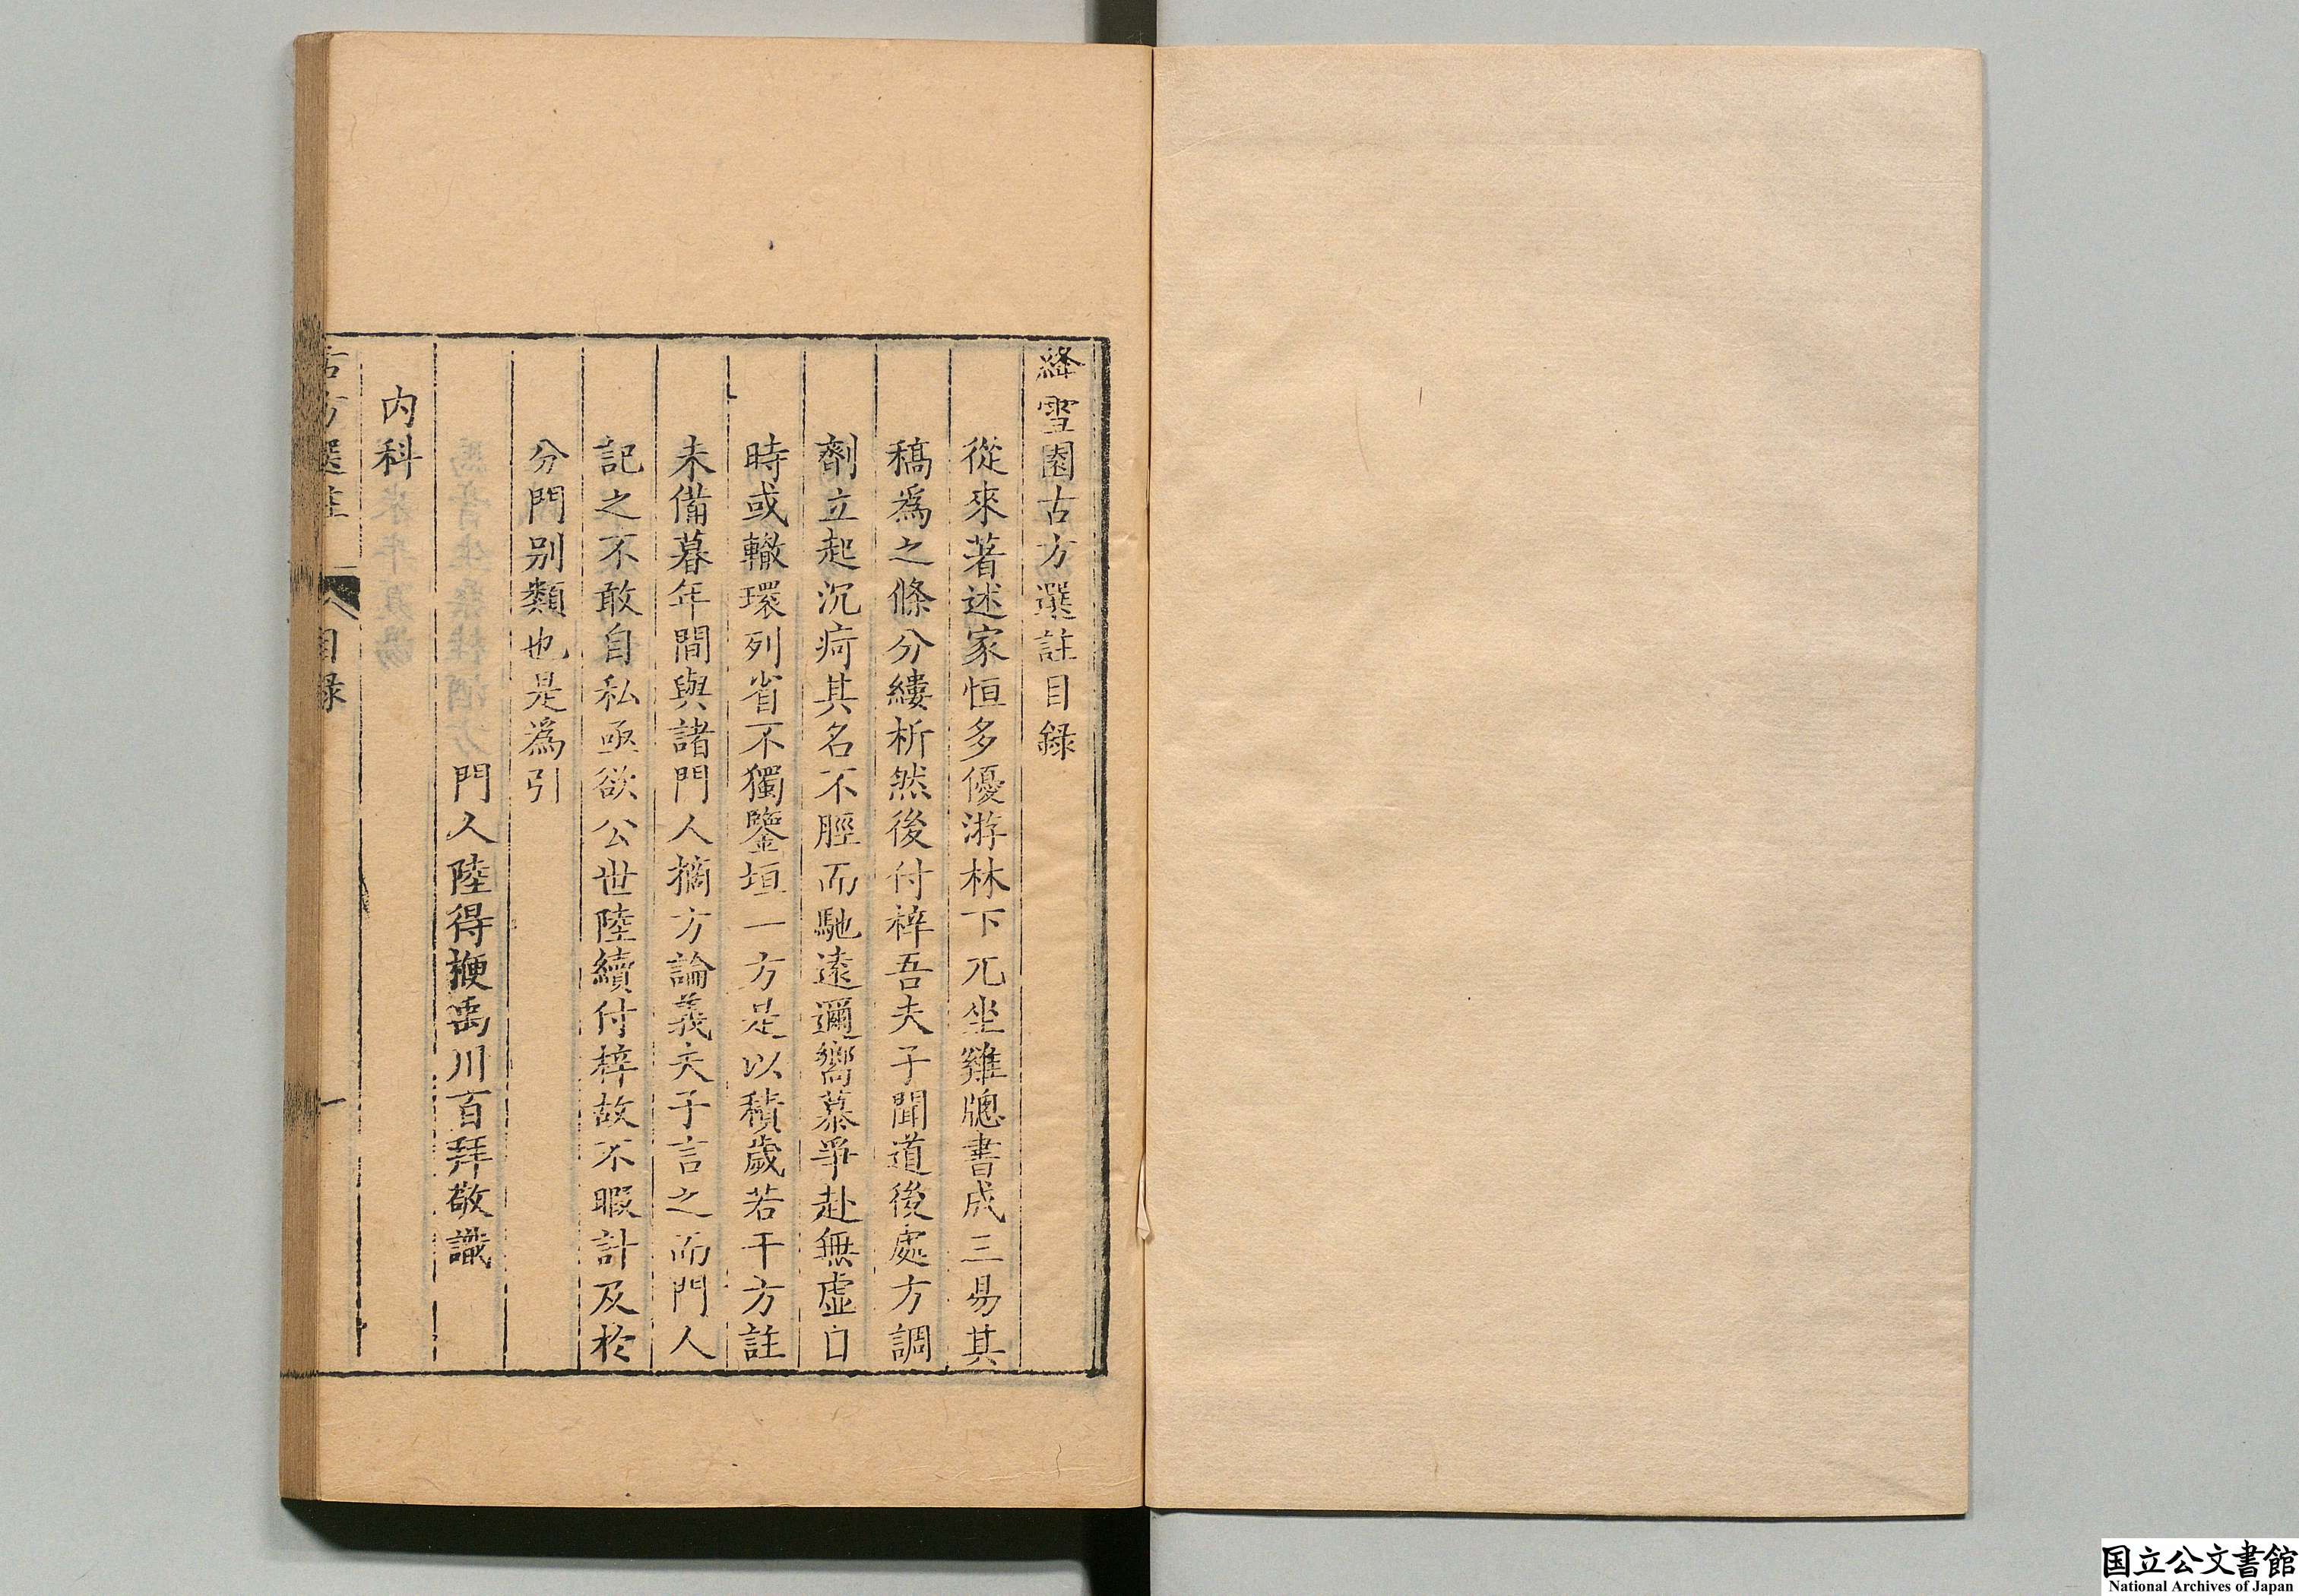 絳雪園古方選註目錄
從來著述家恒多優游林下兀坐雞牕書成三易其
稿爲之條分縷析然後付梓吾夫子聞道後處方調
劑立起沉疴其名不脛而馳遠邇嚮慕爭赴無虛日
時或轍環列省不獨鑒垣一方是以積歲若干方註
未備暮年間與諸門人摘方論義夫子言之而門人
記之不敢自私亟欲公世陸續付梓故不暇計及於
分門别類也是爲引
門人陸得㮣禹川百拜敬識
内科
古方選註
目錄
一
国立公文書館
National Archives of Japan